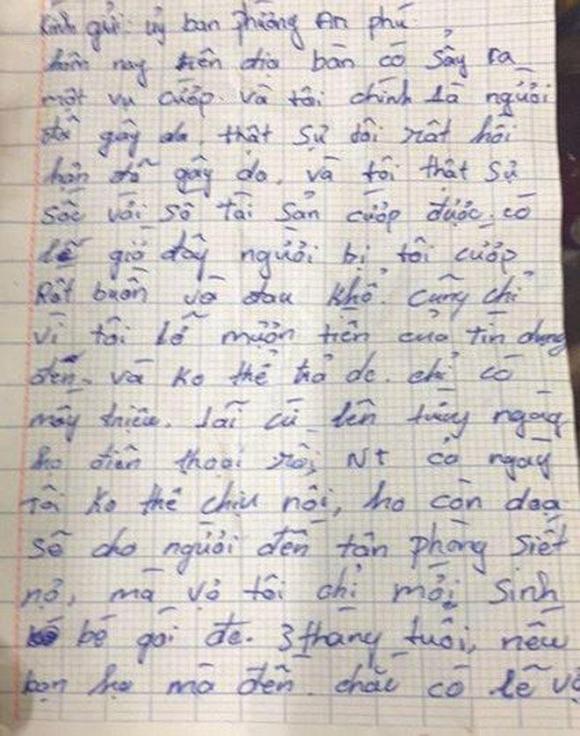 Kính gửi: uỷ ban phường An phú
hôm nay trên địa bàn có sảy ra
một vụ cướp. và tôi chính là người
đã gây da, thật sự tôi rất hối
hận đã gây da. và tôi thật sự
sốc với số tài sản cướp được. có
lẽ giờ đây người bị tôi cướp
Rất buồn và đau khổ. cũng chỉ
vì tôi lỡ mượn tiền của tín dụng
đen. và ko thể trả dc. chỉ có
mấy triệu. lãi cứ lên từng ngày
họ điện thoại rồi, NT cả ngày
Tôi ko thể chịu nổi, họ còn dọa
sẽ cho người đến tận phòng siết
nợ, mà vợ tôi chỉ mới sinh
bé gái đc. 3 tháng tuổi, nếu
bọn họ mà đến. chắc có lẽ vợ